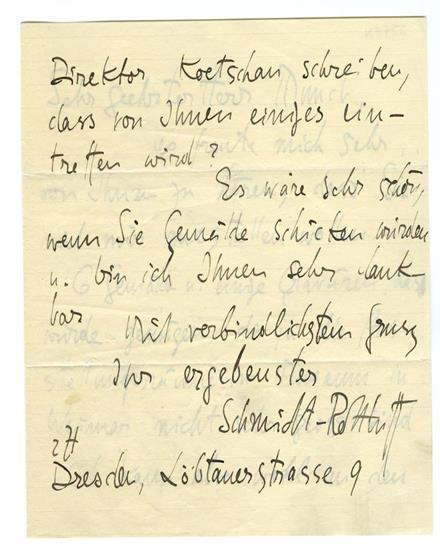 Direktor Koetschau schreiben,
dass von Ihnen einiges ein-
treffen wird?
Es wäre sehr schön,
wenn Sie Gemälde schicken würden
u. bin ich Ihnen sehr dank-
bar
Mit verbindlichstem Gruss
Ihr ergebenster
Schmidt-Rottluff
zZ
Dresden, Löbtauerstrasse 9